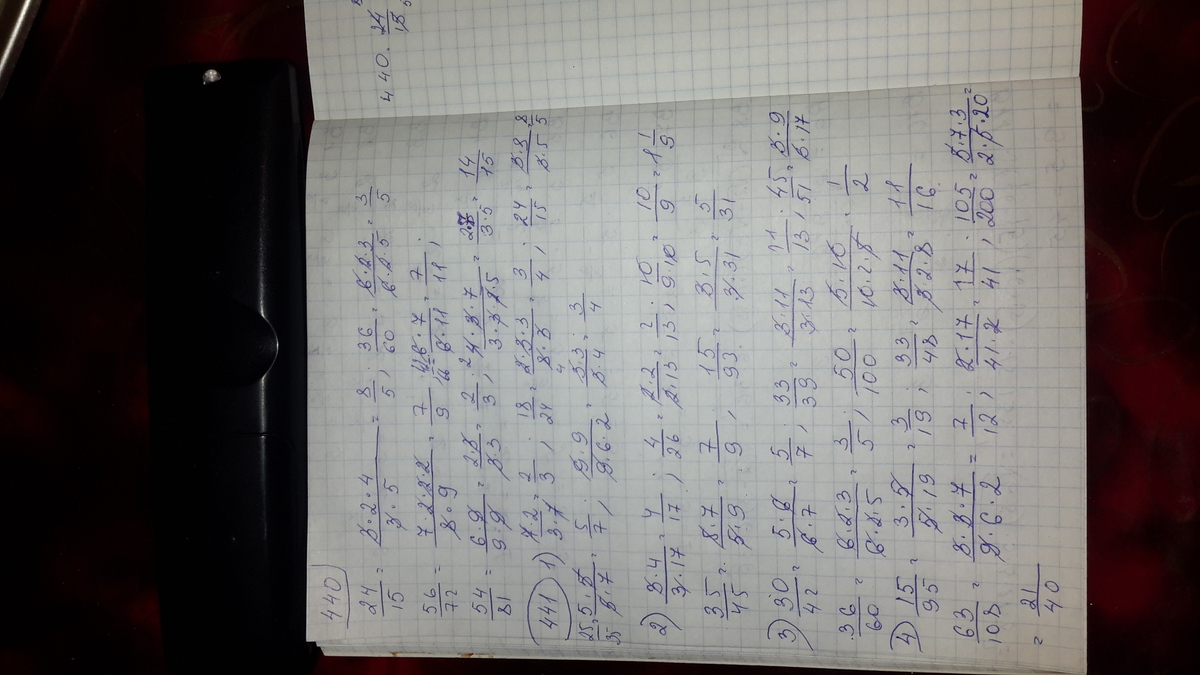 440
24/15 = 3·2·4/3·5 = 8/5; 36/60 = 6·2·3/6·2·5 = 3/5
56/72 = 7·2·2·2/8·9 = 7/9; 6·7/6·11 = 7/11;
54/81 = 6·9/9·9 = 2·3/3·3 = 2/3; 4·3·7/3·3·2·5 = 2·7/3·5 = 14/15
441 1) 7·2/3·7 = 2/3; 18/24 = 2·3·3/8·3 = 3/4; 24/15 = 3·8/3·5 8/5
25/35 = 5·5/5·7 = 5/7; 9·9/9·6·2 = 3·3/3·4 = 3/4
2) 3·4/3·17 = 4/17; 4/26 = 2·2/2·13 = 2/13; 10/9·10 = 10/9 = 1 1/9
35/45 = 5·7/5·9 = 7/9; 15/93 = 3·5/3·31 = 5/31
3) 30/42 = 5·6/6·7 = 5/7; 33/39 = 3·11/3·13 = 11/13; 45/51 = 5·9/5·17
36/60 = 6·2·3/6·2·5 = 3/5; 50/100 = 5·10/10·2·5 = 1/2
4) 15/95 = 3·5/5·19 = 3/19; 33/48 = 3·11/3·2·8 = 11/16
63/108 = 3·3·7/9·6·2 = 7/12; 2·17/41·2 = 17/41; 105/200 = 5·7·3/2·5·20
= 21/40
440. 24/15